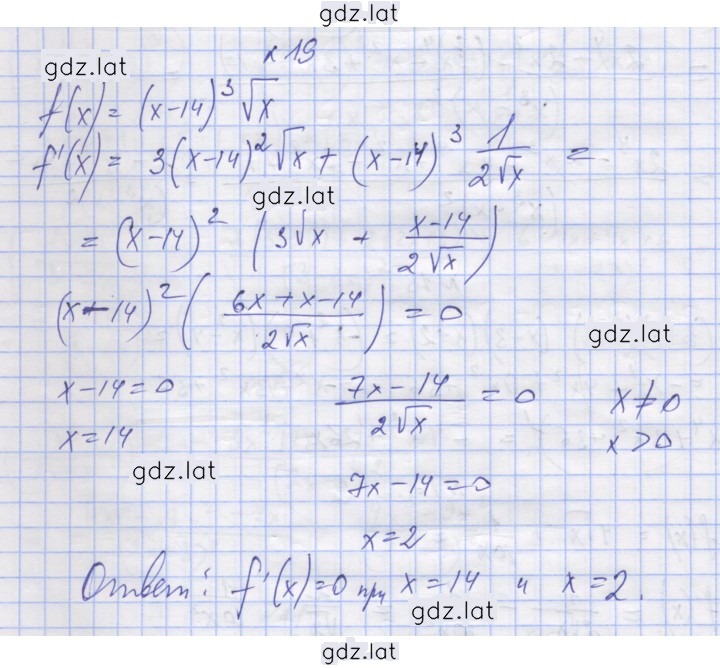 gdz.lat
№ 19
gdz.lat
f(x) = (x-14)³ √x
f'(x) = 3(x-14)² √x + (x-14)³ 1/(2√x) =
gdz.lat
= (x-14)² (3√x + (x-14)/(2√x))
(x-14)² ((6x+x-14)/(2√x)) = 0
gdz.lat
x-14=0 (7x-14)/(2√x) = 0 x≠0
x=14 x>0
gdz.lat
7x-14=0
x=2
Ответ: f'(x)=0 при x=14 и x=2.
gdz.lat
gdz.lat